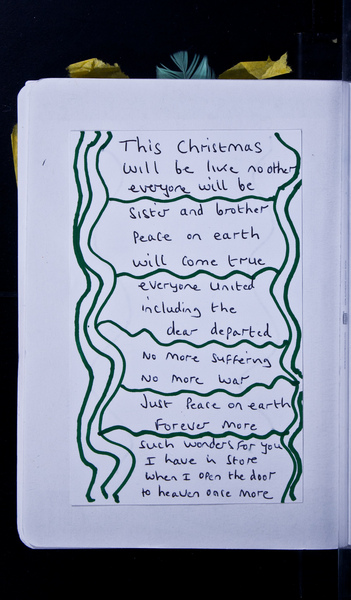 This Christmas
will be like no other
everyone will be
Sister and brother
Peace on earth
will come true
everyone united
including the
dear departed
No more suffering
No more war
Just Peace on earth
Forever more
Such wonders for you
I have in store
When I open the door
to heaven once more